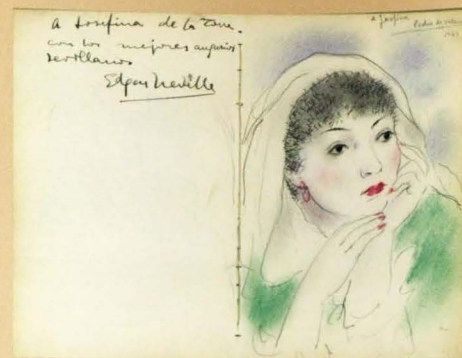 A Josefina de la Torre
con los mejores augurios
sevillanos
Edgar Neville
a Josefina